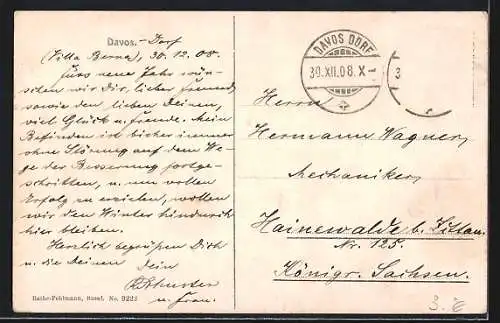 Davos.-Dorf
(Villa Berna), 30.12.08.
Fürs neue Jahr wün-
schen wir Dir, lieber Freund
sowie den lieben Deinen,
viel Glück u. Freude. Mein
Befinden ist bisher immer
ohne Störung auf dem We-
ge der Besserung fortge-
schritten, u. um vollen
Erfolg zu erzielen, wollen
wir den Winter hindurch
hier bleiben.
Herzlich begrüßen Dich
u. die Deinen
Dein
Schuster
u. Frau.
Rathe-Fehlmann, Basel. No. 9222
DAVOS DORF
30.XII.08.X-
3
Herrn
Hermann Wagner,
Mechaniker,
Hainewalde b. Zittau.
Nr. 125.
Königr. Sachsen.
3.-€